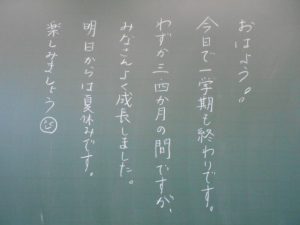 おはよう!!
今日で一学期も終わりです。
わずか三、四か月の間ですが、
みなさんよく成長しました。
明日からは夏休みです。
楽しみましょう